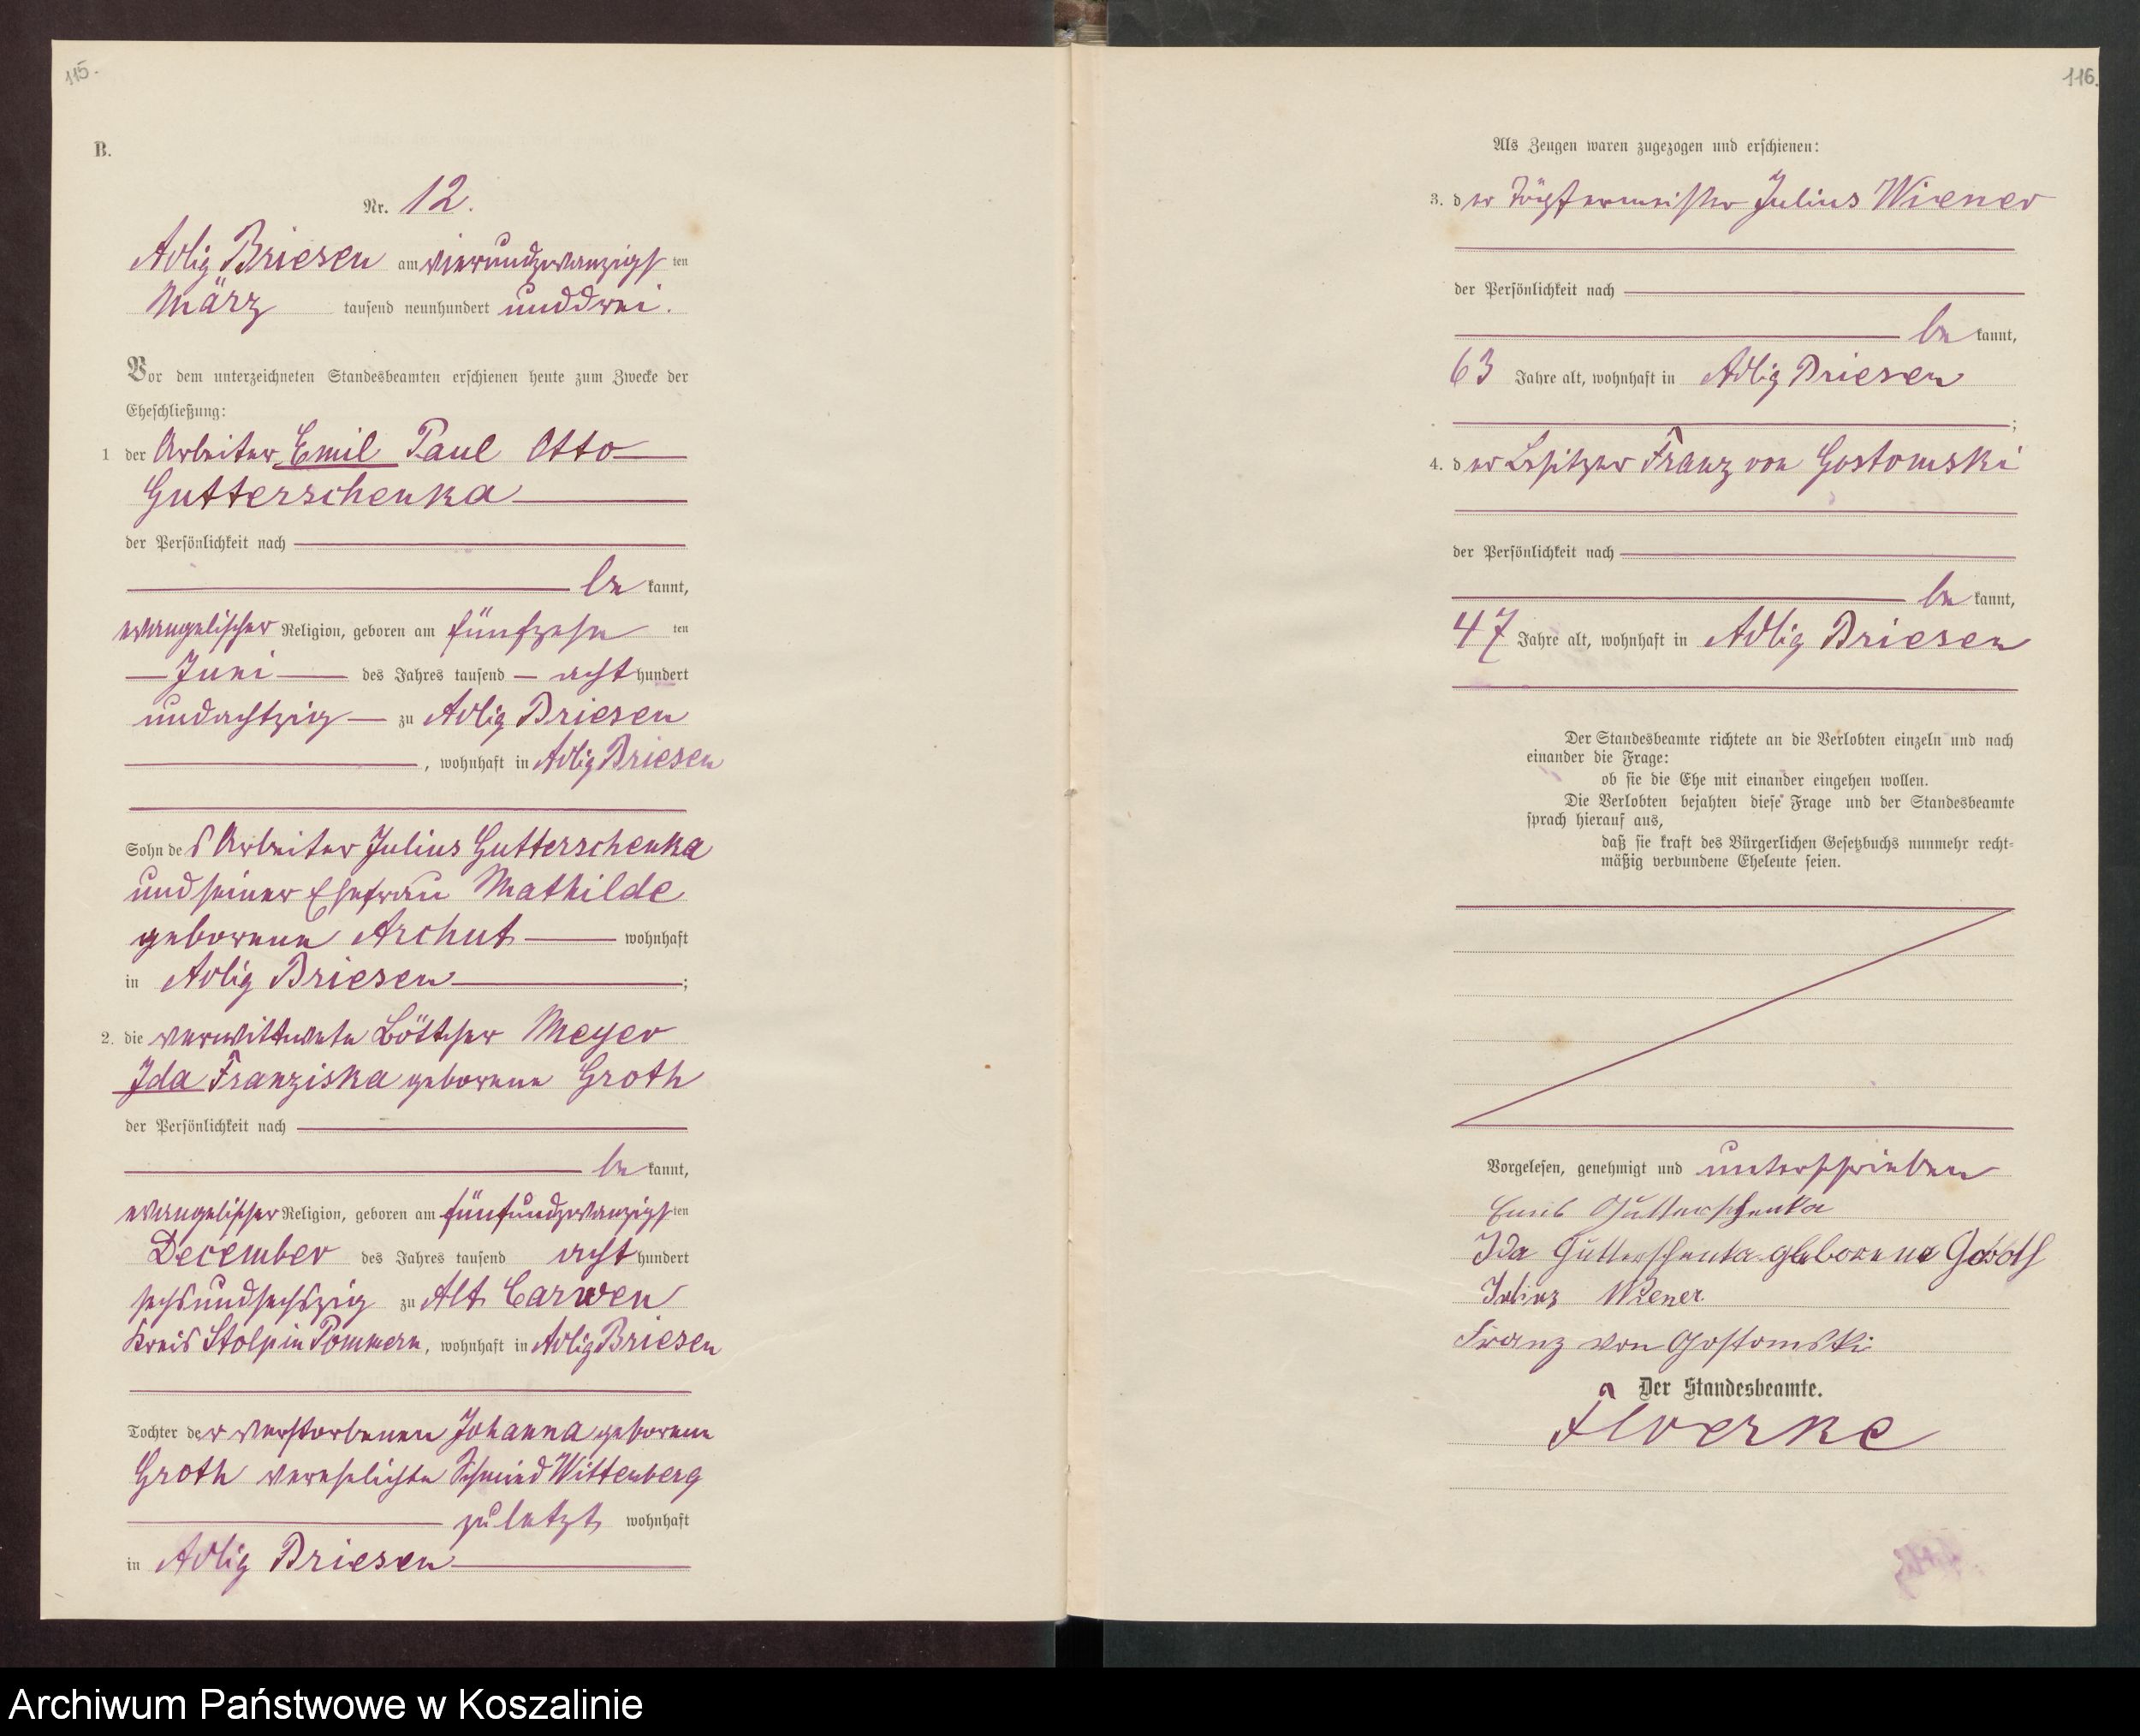 115.
B.
Nr. 12.
Adlig Briesen am vierundzwanzigsten
März tausend neunhundert und drei.
Vor dem unterzeichneten Standesbeamten erschienen heute zum Zwecke der
Eheschließung:
1 der Arbeiter Emil Paul Otto
Gutterschenka
der Persönlichkeit nach
bekannt,
evangelischer Religion, geboren am fünfzehnten
Juni des Jahres tausend achthundert
undachtzig zu Adlig Briesen
, wohnhaft in Adlig Briesen
Sohn des Arbeiter Julius Gutterschenka
und seiner Ehefrau Mathilde
geborene Archut wohnhaft
in Adlig Briesen;
2. die verwittwete Böttcher Meyer
Ida Franziska geborene Groth
der Persönlichkeit nach
bekannt,
evangelischer Religion, geboren am fünfundzwanzigsten
December des Jahres tausend achthundert
sechsundsechszig zu Alt Carwen
Kreis Stolp in Pommern, wohnhaft in Adlig Briesen
Tochter der verstorbenen Johanna geborene
Groth verehelichte Schmied Wittenberg
zuletzt wohnhaft
in Adlig Briesen
116.
Als Zeugen waren zugezogen und erschienen:
3. der Julius Wiener
der Persönlichkeit nach
bekannt,
63 Jahre alt, wohnhaft in Adlig Briesen
;
4. der Besitzer Franz von Gostomski
der Persönlichkeit nach
bekannt,
47 Jahre alt, wohnhaft in Adlig Briesen
Der Standesbeamte richtete an die Verlobten einzeln und nach
einander die Frage:
ob sie die Ehe mit einander eingehen wollen.
Die Verlobten bejahten diese Frage und der Standesbeamte
sprach hierauf aus,
daß sie kraft des Bürgerlichen Gesetzbuchs nunmehr recht-
mäßig verbundene Eheleute seien.
Vorgelesen, genehmigt und unterschrieben
Emil Gutterschenka
Ida Gutterschenka geborene Groth
Julius Wiener
Franz von Gostomski
Der Standesbeamte.
Floerke
Archiwum Państwowe w Koszalinie